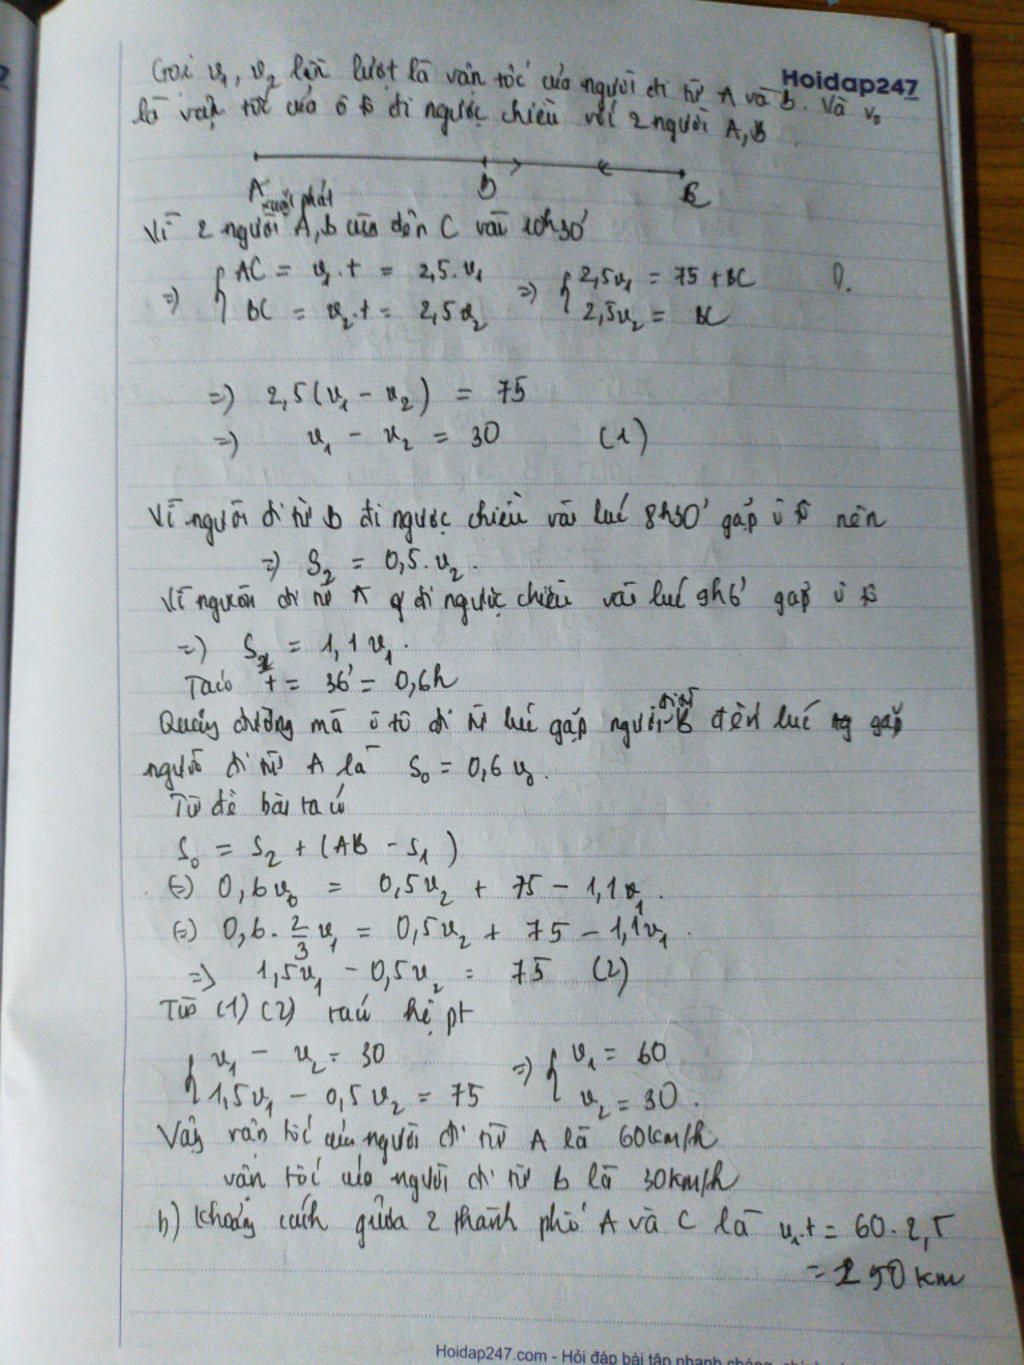 Gọi v₁, v₂ lần lượt là vận tốc của người đi từ A và B. Và v₀
Hoidap247
là vận tốc của ô tô đi ngược chiều với 2 người A, B
A B C
xuất phát
Vì 2 người A, B cùng đến C vào 10h30'
=> { AC = v₁.t = 2,5.v₁ => { 2,5v₁ = 75 + BC
BC = v₂.t = 2,5v₂ 2,5v₂ = BC
=> 2,5(v₁ - v₂) = 75
=> v₁ - v₂ = 30 (1)
Vì người đi từ B đi ngược chiều vào lúc 8h30' gặp ô tô nên
=> S₂ = 0,5.v₂.
Vì người đi từ A đi ngược chiều vào lúc 9h6' gặp ô tô
=> S₁ = 1,1v₁.
Ta có t = 36' = 0,6h
Quãng đường mà ô tô đi từ lúc gặp người đi từ B đến lúc gặp
người đi từ A là S₀ = 0,6 v₀.
Từ đề bài ta có
S₀ = S₂ + (AB - S₁)
(=) 0,6v₀ = 0,5v₂ + 75 - 1,1v₁.
(=) 0,6.2/3 v₁ = 0,5v₂ + 75 - 1,1v₁.
=> 1,5v₁ - 0,5v₂ = 75 (2)
Từ (1) (2) ta có hệ pt
{ v₁ - v₂ = 30 => { v₁ = 60
1,5v₁ - 0,5v₂ = 75 v₂ = 30.
Vậy vận tốc của người đi từ A là 60km/h
vận tốc của người đi từ B là 30km/h
b) Khoảng cách giữa 2 thành phố A và C là v₁.t = 60.2,5
= 150 km
Hoidap247.com - Hỏi đáp bài tập nhanh chóng,